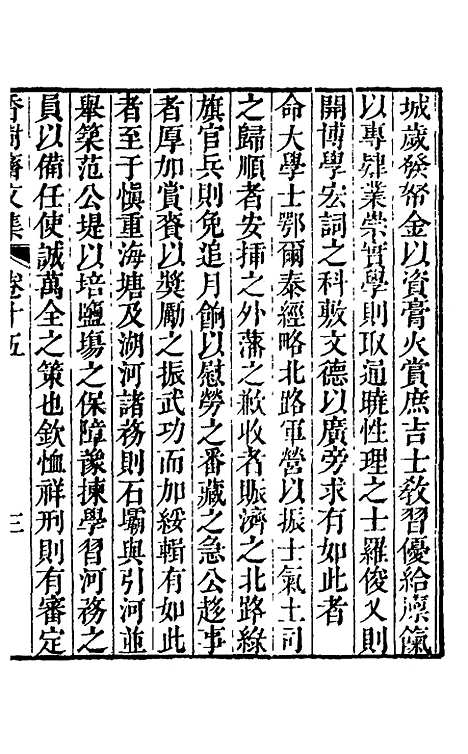 城歲發帑金以資膏火賞庶吉士敎習優給廩餼
以專肄業崇實學則取通曉性理之士羅俊乂則
開博學宏詞之科敷文德以廣旁求有如此者
命大學士鄂爾泰經略北路軍營以振士氣土司
之歸順者安揷之外藩之歉收者賑濟之北路綠
旗官兵則免追月餉以慰勞之番藏之急公趍事
者厚加賞賚以奬勵之振武功而加綏輯有如此
者至于愼重海塘及湖河諸務則石壩與引河並
舉築范公堤以培鹽塲之保障豫揀學習河務之
員以備任使誠萬全之策也欽恤祥刑則有審定
香樹齋文集 卷十五 三